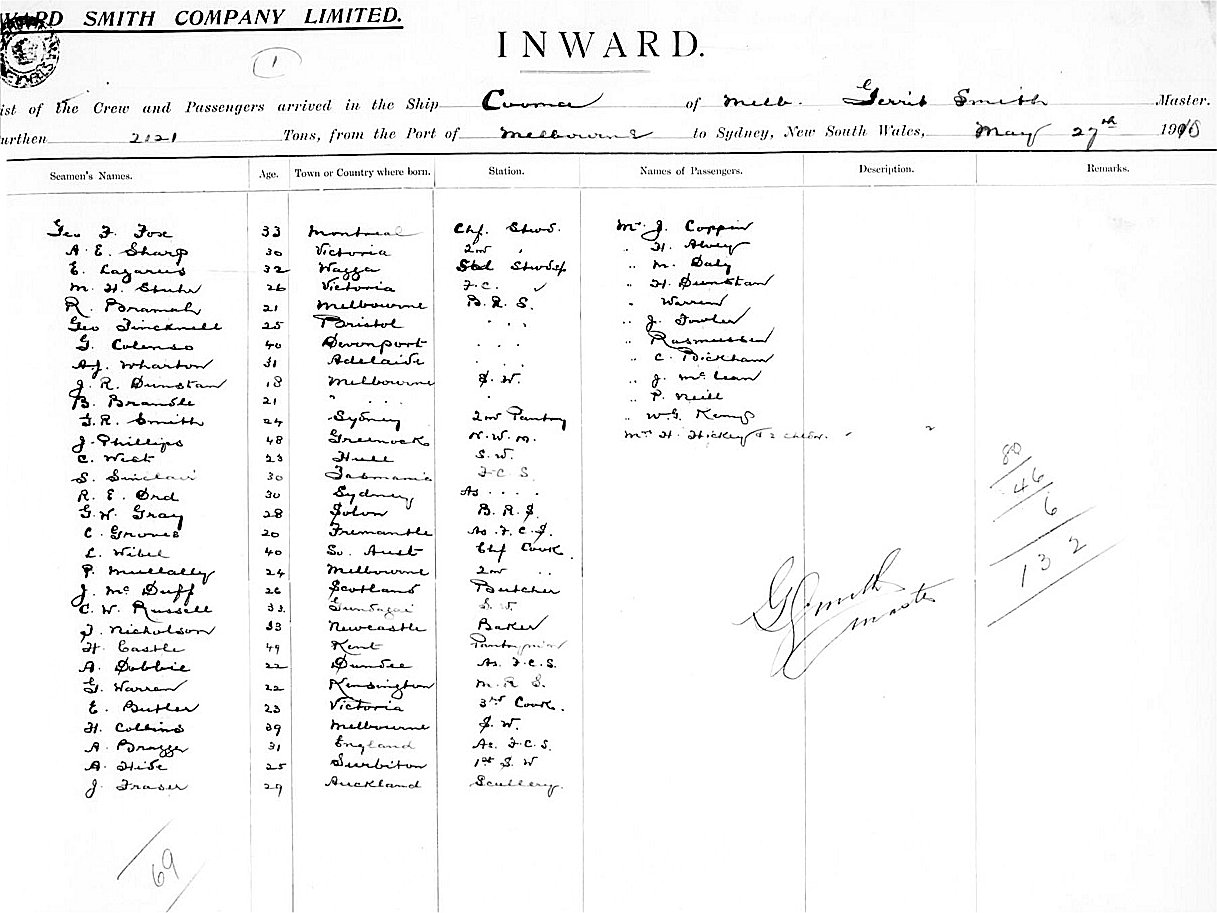 WARD SMITH COMPANY LIMITED.
INWARD.
1
ist of the Crew and Passengers arrived in the Ship Cooma of Melb. Gerrit Smith Master.
urthen 2021 Tons, from the Port of Melbourne to Sydney, New South Wales, May 27th 1910
Seamen's Names. Age. Town or Country where born. Station. Names of Passengers. Description. Remarks.
Geo F. Fox 33 Montreal Chf. Stwd. Mr J. Coppin
A. E. Sharp 30 Victoria 2nd " " H. Alvey
E. Lazarus 32 Wagga Stwdss " M. Daly
M. H. Stuhr 26 Victoria F.C. " H. Dunstan
R. Bramah 21 Melbourne B. R. S. " Warren
Geo Tincknell 25 Bristol . . . " J. Fowler
G. Colenso 40 Devonport . . . " Rasmussen
A.J. Wharton 31 Adelaide . . . " C. Bickham
J. R. Dunstan 18 Melbourne S. W. " J. McLean
B. Brandle 21 " . . . . " P. Neill
G. R. Smith 24 Sydney 2nd Pantry " W. G. Kemp
J. Phillips 48 Greenock N. W. M. Mrs H. Hickey & 2 chldn.
C. West 23 Hull S. W.
S. Sinclair 30 Tasmania F. C. S.
R. E. Ord 30 Sydney As . . . .
G. W. Gray 28 B. R. S.
C. Groves 20 Fremantle As. F. C. S.
L. Wibel 40 So. Aust Chf Cook.
P. Mullally 24 Melbourne 2nd ..
J. McDuff 26 Scotland Butcher
C. W. Russell 33 Gundagai S. W.
J. Nicholson 33 Newcastle Baker
H. Castle 49 Kent Pantryman
A. Dobbie 22 Dundee As. F. C. S.
G. Warren 22 Kensington M. R. S.
E. Butler 23 Victoria 3rd Cook.
H. Collins 39 Melbourne S. W.
A. Bragge 31 England As. F. C. S.
A. Hide 25 Surbiton 1st S. W
J. Fraser 29 Auckland Scullery.
80
46
6
132
G Smith
Master
69